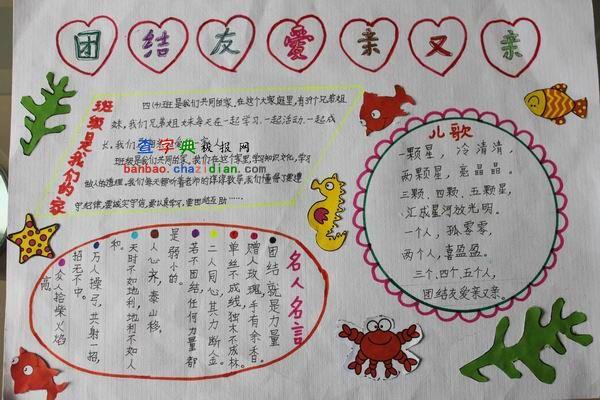 团结友爱亲又亲
班级是我们的家
四(4)班是我们共同的家。在这个大家庭里，有39个兄弟姐
妹，我们兄弟姐妹每天在一起学习，一起活动，一起成
长，我们
班级是我们共同的家。我们在这个家里，学习知识文化，学习
做人的道理。我们每天都听着老师的谆谆教导。我们懂得了要遵
守纪律，要诚实守信，要认真学习，要团结互助……
查字典 板报网
banbao.chazidian.com
儿歌
一颗星，冷清清，
两颗星，亮晶晶。
三颗、四颗、五颗星，
汇成星河放光明。
一个人，孤零零，
两个人，喜盈盈。
三个、四个、五个人，
团结友爱亲又亲。
名人名言
团结就是力量
赠人玫瑰，手有余香。
单丝不成线，独木不成林。
二人同心，其力断金。
若不团结，任何力量都
是弱小的。
人心齐，泰山移。
天时不如地利，地利不如人
和。
万人操弓，共射一招，
招无不中。
众人拾柴火焰
高。